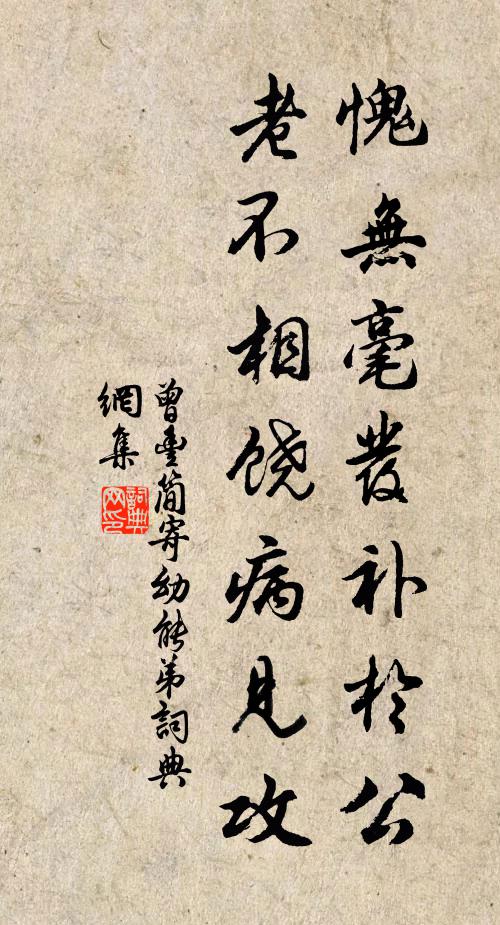 愧無毫發补於公
老不相饶病見攻
曾豊简寄幼能弟詞典
網集
詞典
网印